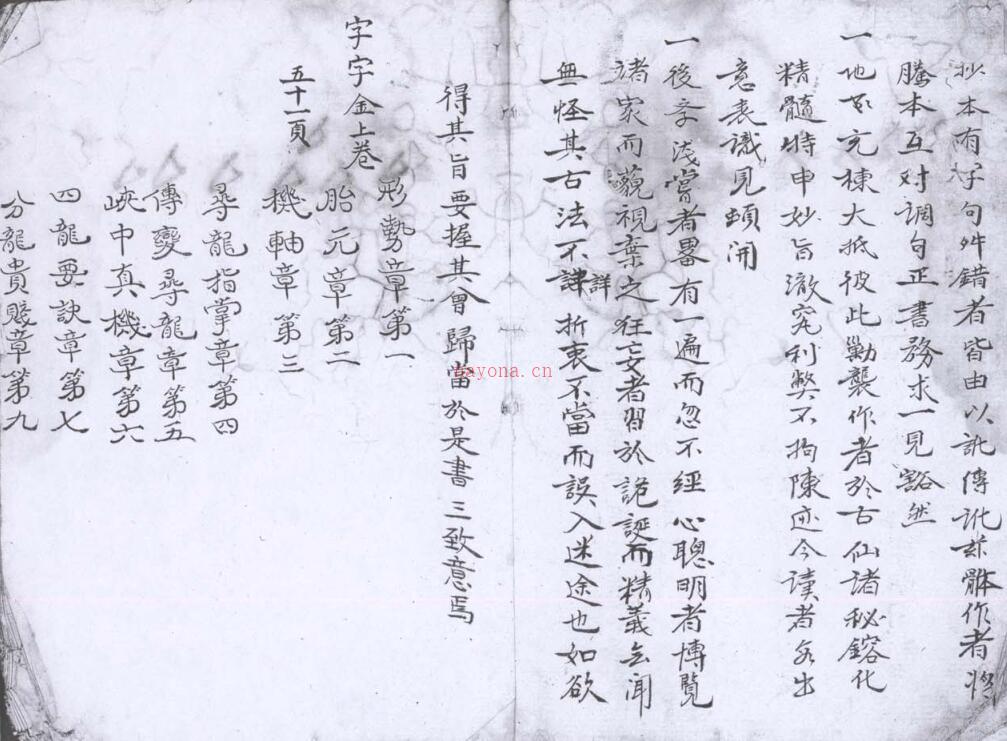 抄本有字句舛錯者皆由以訛傳訛茲骵作者將
騰本互对調句正書務求一見豁然
一地 充棟大抵彼此勦襲作者於古仙諸秘鎔化
精髓特申妙旨澈究利獘不拘陳迹今讀者 出
意表識見頓開
一後孛淺嘗者畧有一遍而忽不經心聰明者博覽
諸家而藐視棄之往妄者習於詭誕而精義 闻
無怪其古法不諱詳折衷不當而誤入迷途也如欲
得其旨要握其會歸當於是書三致意焉
字字金上卷
五十一頁
形勢章第一
胎元章第二
機軸章第三
尋龍指掌章第四
傳變尋龍章第五
峽中真機章第六
四龍要訣章第七
分龍貴賤章第九
bayona.cn